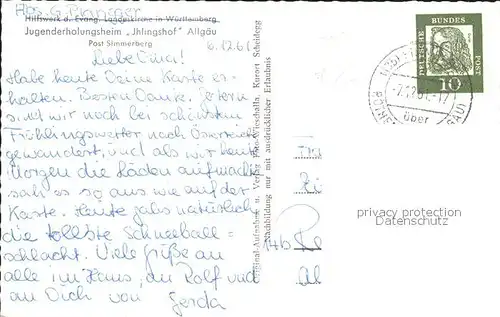 Hilfswerk d. Evang. Landeskirche in Württemberg
Jugenderholungsheim „Jhlingshof" Allgäu
Post Simmerberg
6.12.61
Liebe Oma!
Habe heute Deine Karte er-
halten. Besten Dank. Gestern
sind wir noch bei schönstem
Frühlingswetter nach Österreich
gewandert, und als wir heute
Morgen die Läden aufmachten
sah es so aus wie auf der
Karte. Heute gabs natürlich
die tollste Schneeball=
schlacht. Viele Grüße an
alle im Haus, an Rolf und
an Dich von Gerda
Original-Aufnahme u. Verlag Foto-Wirschalla, Kurort Scheidegg
Nachbildung nur mit ausdrücklicher Erlaubnis
DEUTSCHE BUNDES POST
10
-7.12.61.-17
über
14b
privacy protection
Datenschutz